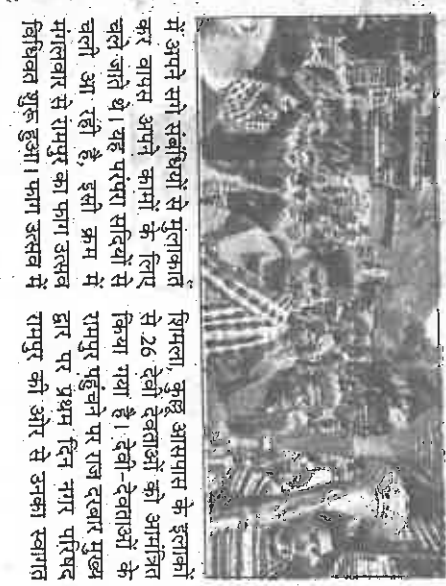 में अपने सगे संबंधियों से मुलाकातें
कर वापस अपने कामों के लिए
चले जाते थे। यह परंपरा सदियों से
चली आ रही है, इसी क्रम में
मंगलवार से रामपुर का फाग उत्सव
विधिवत शुरू हुआ। फाग उत्सव में
शिमला, कुल्लू आसपास के इलाकों
से 26 देवी देवताओं को आमंत्रित
किया गया है। देवी-देवताओं के
रामपुर पहुंचने पर राज दरबार मुख्य
द्वार पर प्रथम दिन नगर परिषद
रामपुर की ओर से उनका स्वागत